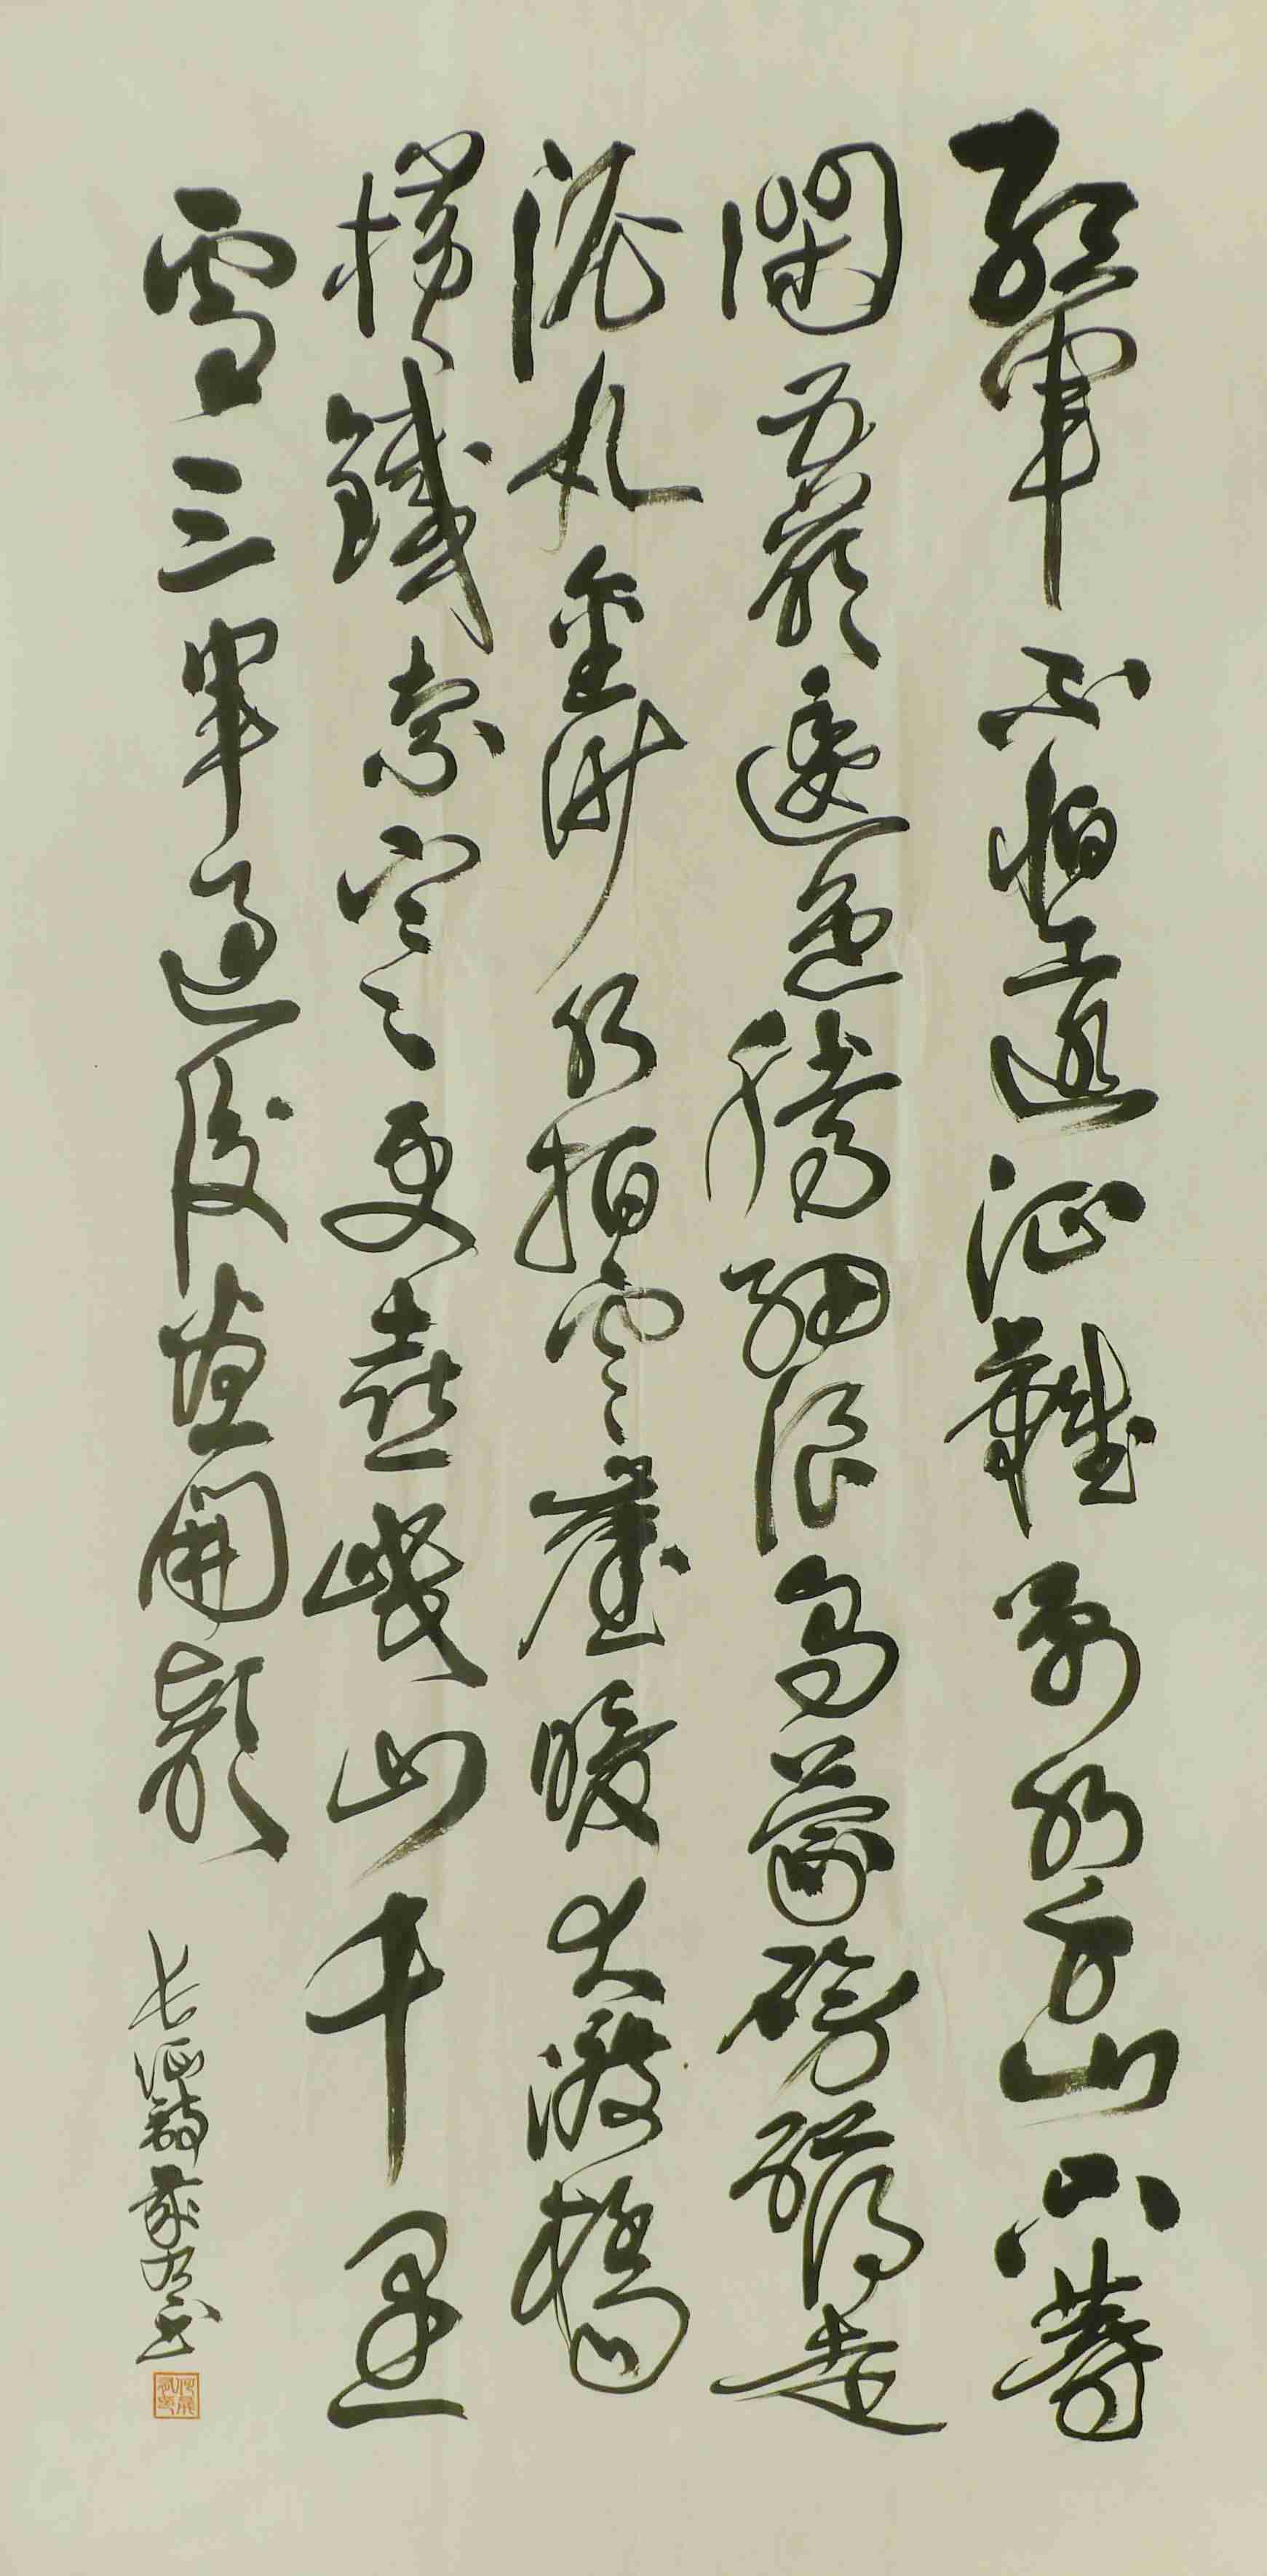 紅軍不怕遠征難萬水千山只等
閑五嶺逶迤騰細浪烏蒙磅礴走
泥丸金沙水拍雲崖暖大渡橋
橫鐵索寒更喜岷山千里
雪三軍過後盡開顏
长征詩 书